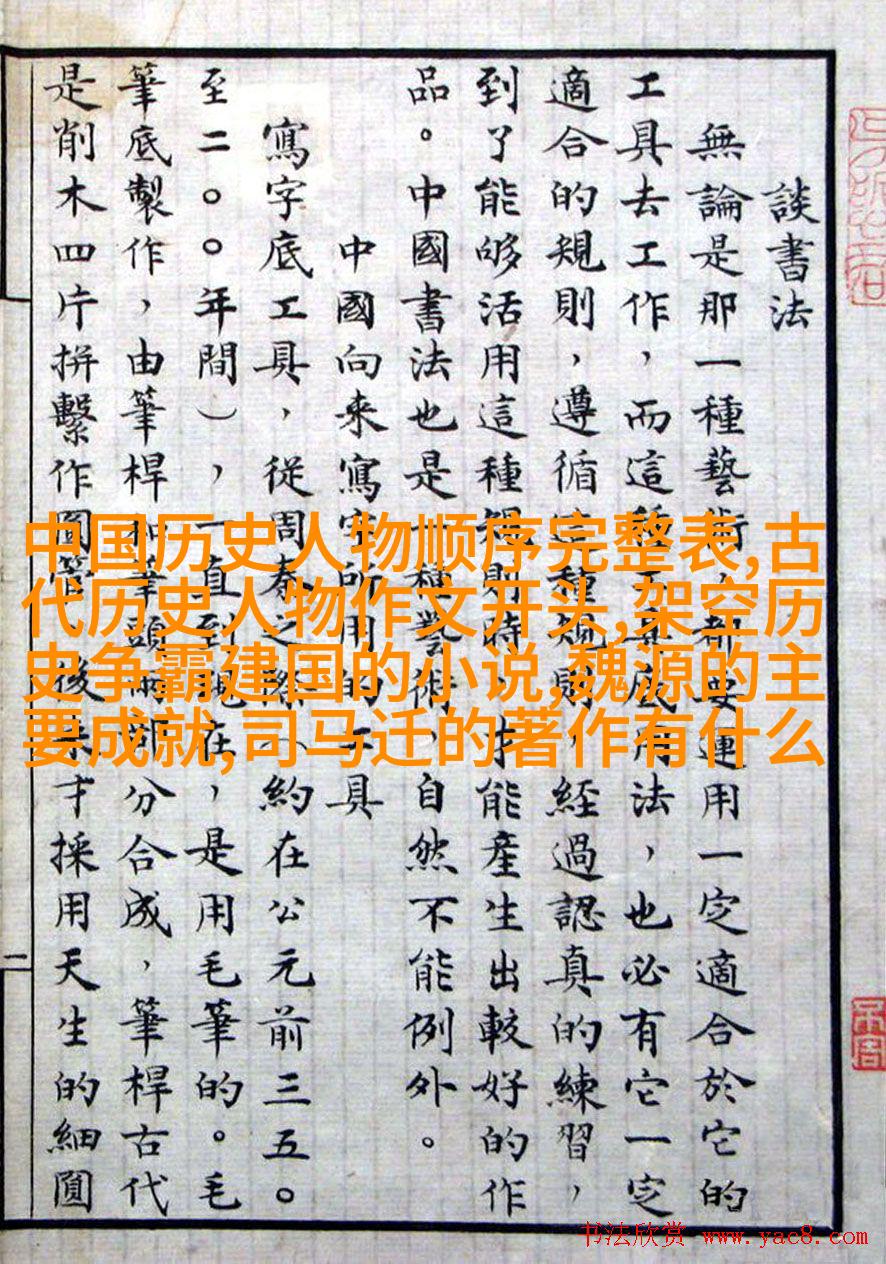 談書法
無論是那一種藝術，都要運用一定適合於它的
工具去工作，而這工具底用法，也必有它一定
適合的規則，遵循這種規則，經過認真的練習，
到了能够活用這種規則時，才能產生出較好的作
品。中國書法也是一種藝術，自然不能例外。
中國向来寫字所用的工具
寫字底工具，從周秦之際（約在公元前三五〇
至二〇〇年間），一直到現在，是用毛筆的。毛
筆底製作，由筆桿和筆頭兩部分合成，筆桿古代
是削木四片拼繫作圓管，後来才採用天生的細圓
二
中国历史人物顺序完整表,古
代历史人物作文开头,架空历
史争霸建国的小说,魏源的主
要成就,司马迁的著作有什么
书法欣赏 www.yac8.com